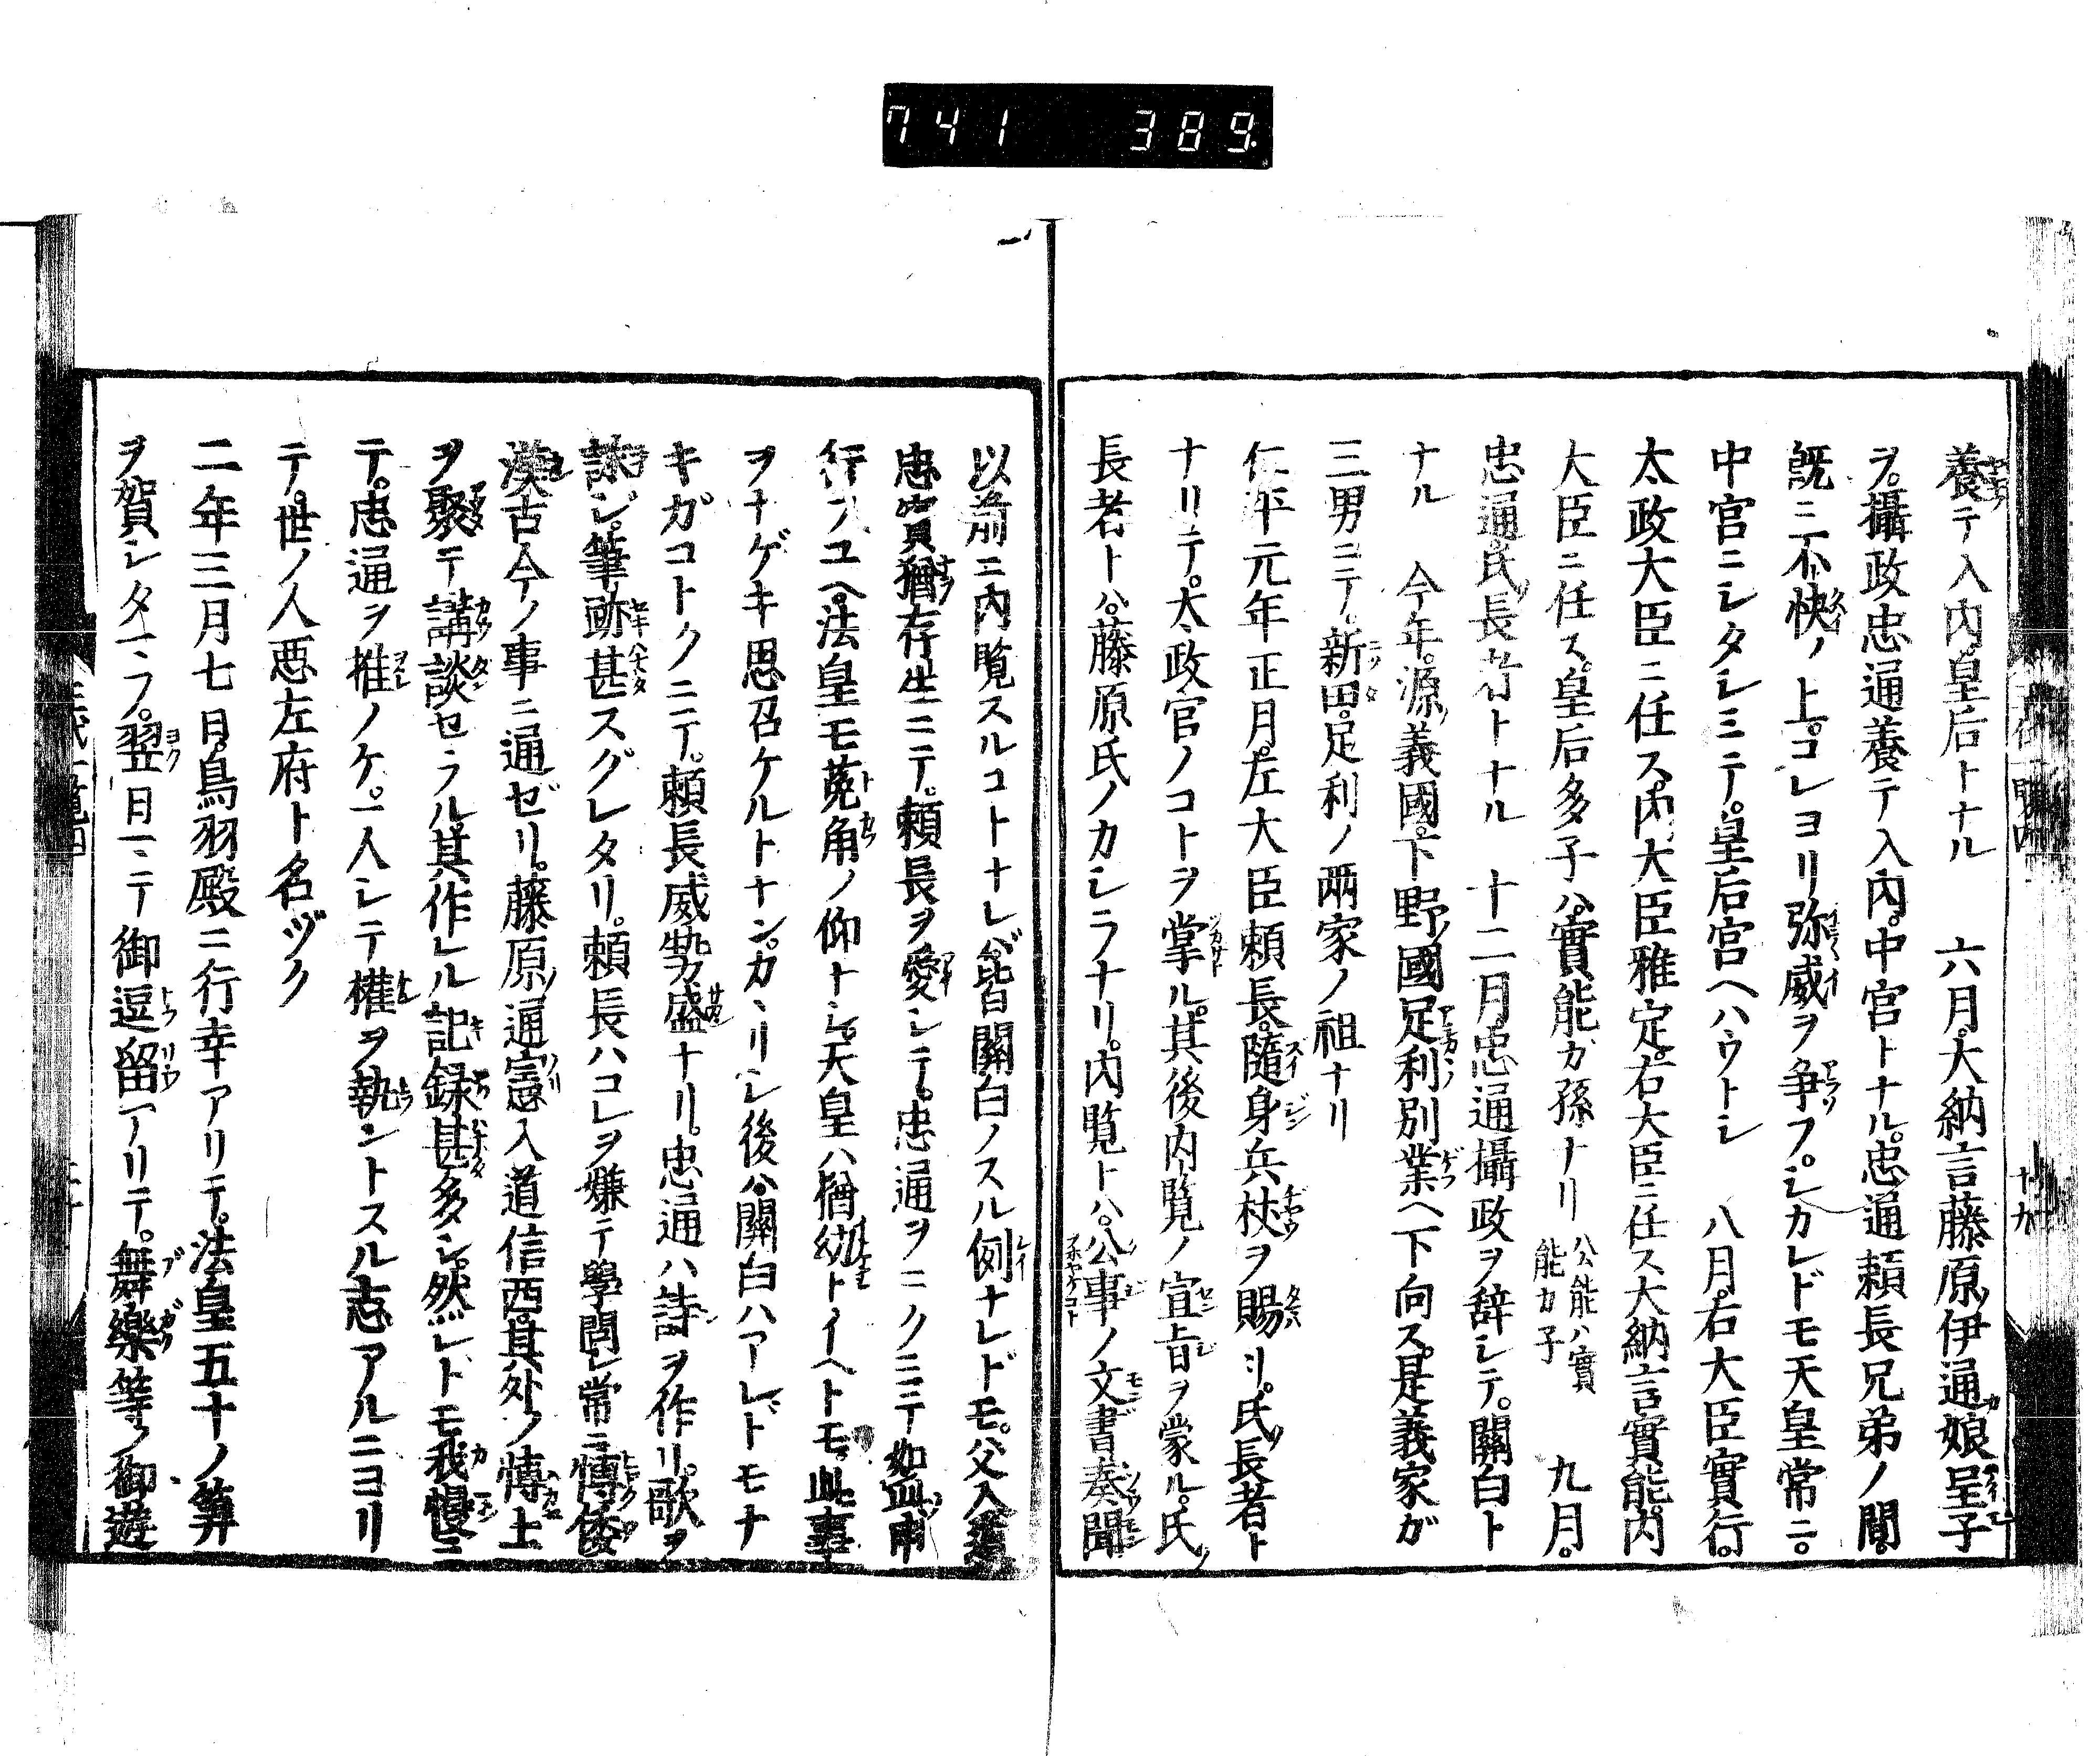 741 389.
養テ入内皇后トナル 六月大納言藤原伊通カ娘呈子
ヲ攝政忠通養テ入内中宮トナル忠通頼長兄弟ノ間
既ニ不快ノ上コレヨリ弥威ヲ爭フシカレドモ天皇常ニ
中宮ニシタシミテ皇后宮ヘハウトシ 八月右大臣實行
太政大臣ニ任ス内大臣雅定右大臣ニ任ス大納言實能内
大臣ニ任ス皇后多子ハ實能カ孫ナリ 公能ハ實能カ子 九月
忠通氏長者トナル 十二月忠通攝政ヲ辞シテ關白ト
ナル 今年源義國下野國足利別業ヘ下向ス是義家ガ
三男ニテ新田足利ノ兩家ノ祖ナリ
仁平元年正月左大臣頼長隨身兵杖ヲ賜リ氏長者ト
ナリテ太政官ノコトヲ掌ル其後内覽ノ宣旨ヲ蒙ル氏ノ
長者トハ藤原氏ノカシラナリ内覽トハ公事ノ文書奏聞
以前ニ内覧スルコトナレバ皆關白ノスル例ナレドモ父入道
忠實猶存生ニテ頼長ヲ愛シテ忠通ヲニクミテ如此申
行フユヘ法皇モ兎角ノ仰ナシ天皇ハ猶幼トイヘトモ此事
ヲナゲキ思召ケルトナンカヽリシ後ハ關白ハアレドモナ
キガコトクニテ頼長威勢盛ナリ忠通ハ詩ヲ作リ歌ヲ
詠シ筆跡甚スグレタリ頼長ハコレヲ嫌テ學問シ常ニ博倭
漢古今ノ事ニ通ゼリ藤原通憲入道信西其外ノ博士
ヲ聚テ講談セラル其作レル記録甚多シ然レトモ我慢ニ
テ忠通ヲ推ノケ一人シテ權ヲ執ントスル志アルニヨリ
テ世ノ人悪左府ト名ヅク
二年三月七日鳥羽殿ニ行幸アリテ法皇五十ノ算
ヲ賀シタマフ翌日マテ御逗留アリテ舞樂等ノ御遊